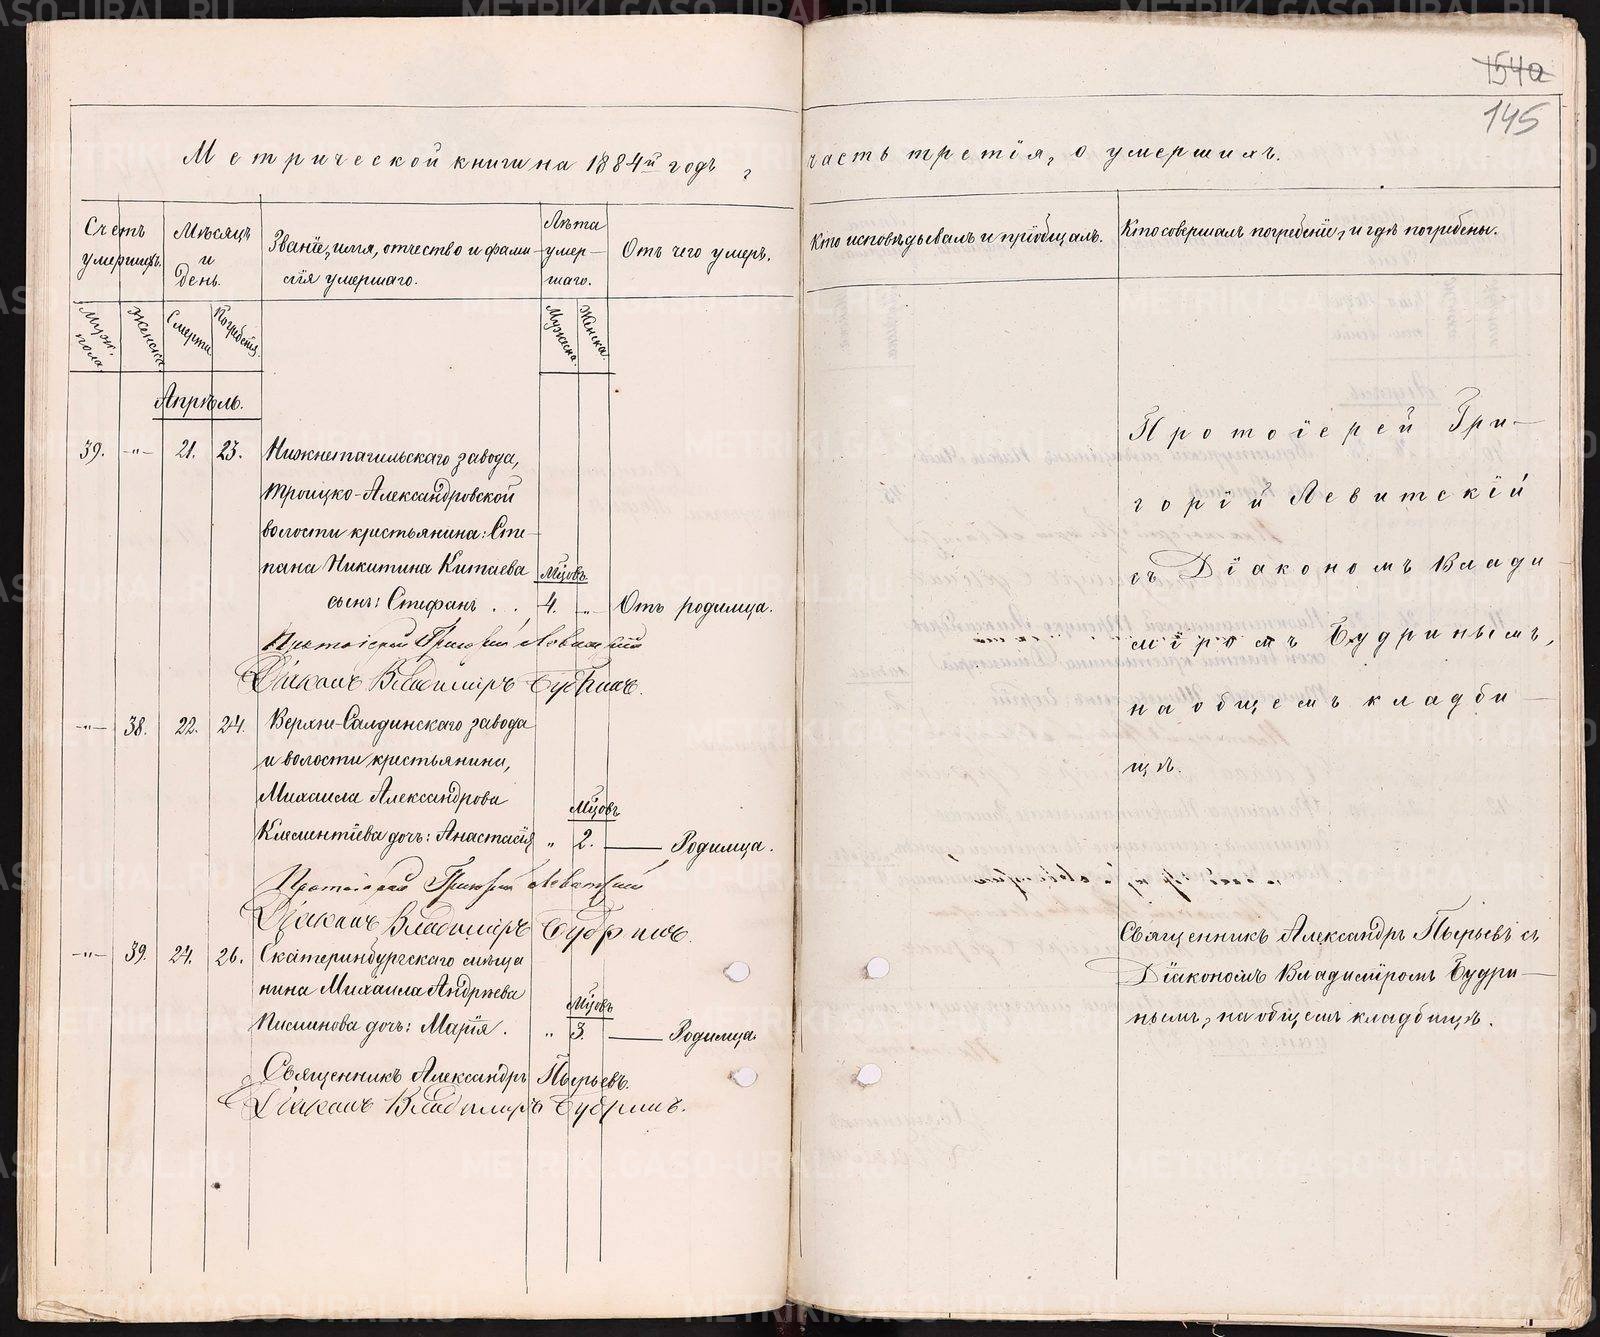 154а
145
Метрической книги на 1884й годъ,
часть третія, о умершихъ.
Счетъ умершихъ.
Мѣсяцъ и день.
Званіе, имя, отчество и фами-
лія умершаго.
Лѣта умер-
шаго.
Отъ чего умеръ.
Кто исповѣдывалъ и пріобщалъ.
Кто совершалъ погребеніе, и гдѣ погребены.
Муж. пола.
Женска.
Смерти
Погребенія.
Мужска.
Женска.
Апрѣль.
39. -"- 21. 23. Нижнетагильскаго завода,
Троицко-Александровской
волости крестьянина: Сте-
пана Никитина Китаева Мѣсяцовъ
сынъ: Стефанъ . . 4. -"- Отъ родимца.
Протоіерей Григорій Левитскій
Діаконъ Владиміръ Будринъ.
-"- 38. 22. 24. Верхне-Салдинскаго завода
и волости крестьянина,
Михаила Александрова Мѣсяцовъ
Клементіева дочь: Анастасія " 2. — Родимца.
Протоіерей Григорій Левитскій
Діаконъ Владиміръ Будринъ.
-"- 39. 24. 26. Екатеринбургскаго мѣща
нина Михаила Андрѣева Мѣсяцовъ
Писминова дочь: Марія. " 3. — Родимца.
Священникъ Александръ Пырьевъ.
Діаконъ Владиміръ Будринъ.
Протоіерей Гри-
горій Левитскій
съ Діакономъ Влади-
міромъ Будринымъ,
на общемъ кладби-
щѣ.
Священникъ Александръ Пырьевъ съ
Діакономъ Владиміромъ Будри-
нымъ, на общемъ кладбищѣ.
METRIKI.GASO-URAL.RU